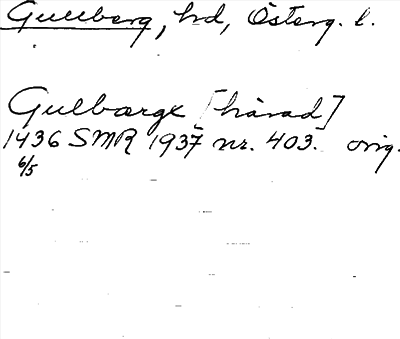 Gullberg, hd, Österg. l.
Gulbærgx [hærad]
1436 SMR 1937 nr. 403. orig.
6/5